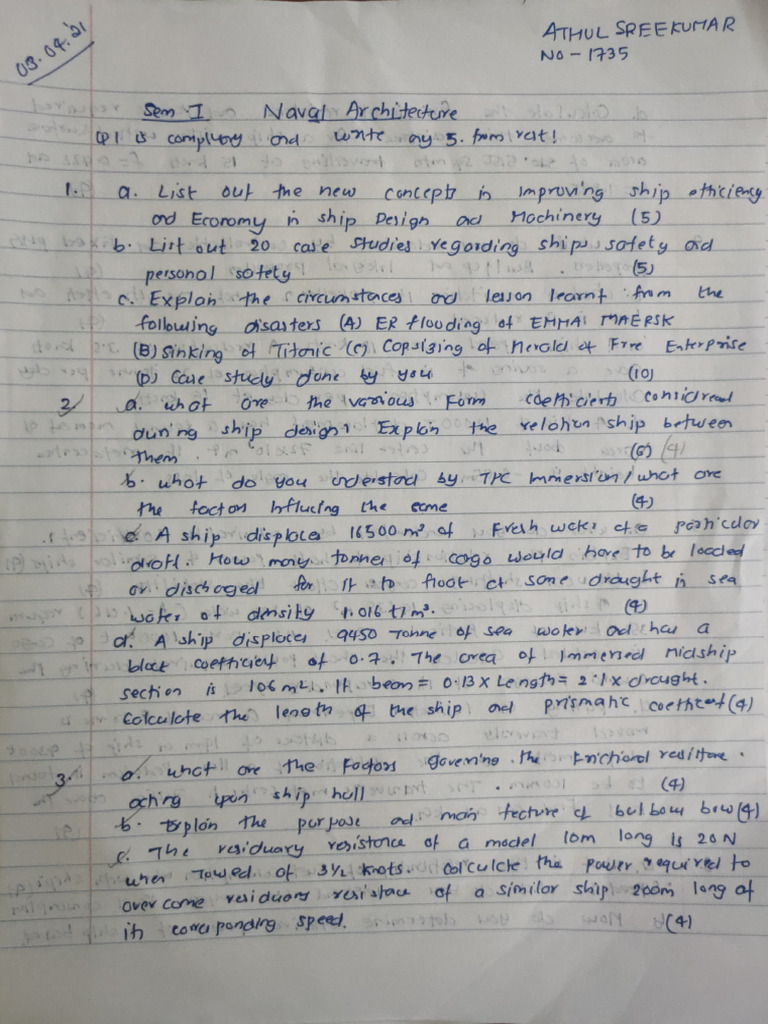 03.04.'21
ATHUL SREEKUMAR
NO - 1735
Sem I Naval Architecture
Q1 is complusory and write any 5. from rest!
1. a. List out the new concepts in improving ship efficiency
and Economy in ship Design and Machinery (5)
b. List out 20 case studies regarding ships safety and
personal safety (5)
c. Explain the circumstances and lesson learnt from the
following disasters (A) ER flooding of EMMA MAERSK
(B) Sinking of Titanic (C) Capsizing of Herald of Free Enterprise
(D) Case study done by you (10)
2 a. what are the various Form coefficients considread
during ship design? Explain the relation ship between
them. (6)
b. what do you understand by TPC Immersion/what are
the factors Influcing the same (4)
c. A ship displaces 16500 m³ of Fresh water at a particular
draft. How many tonnes of cargo would have to be loaded
or discharged for it to float at same draught in sea
water of density 1.016 t/m³. (4)
d. A ship displaces 9450 Tonne of sea water and has a
block coefficient of 0.7. The area of Immersed Midship
section is 106 m². If beam = 0.13 x Length = 2.1 x draught.
Calculate the length of the ship and prismatic coefficient (4)
3. a. what are the Factors governing the Frictional resistance.
acting upon ship hull (4)
b. Explain the purpose and main feature of bulbous bow (4)
c. The residuary resistance of a model 10m long is 20 N
when Towed at 3½ knots. Calculate the power required to
over come residuary resistance of a similar ship 200m long at
its corresponding speed. (4)